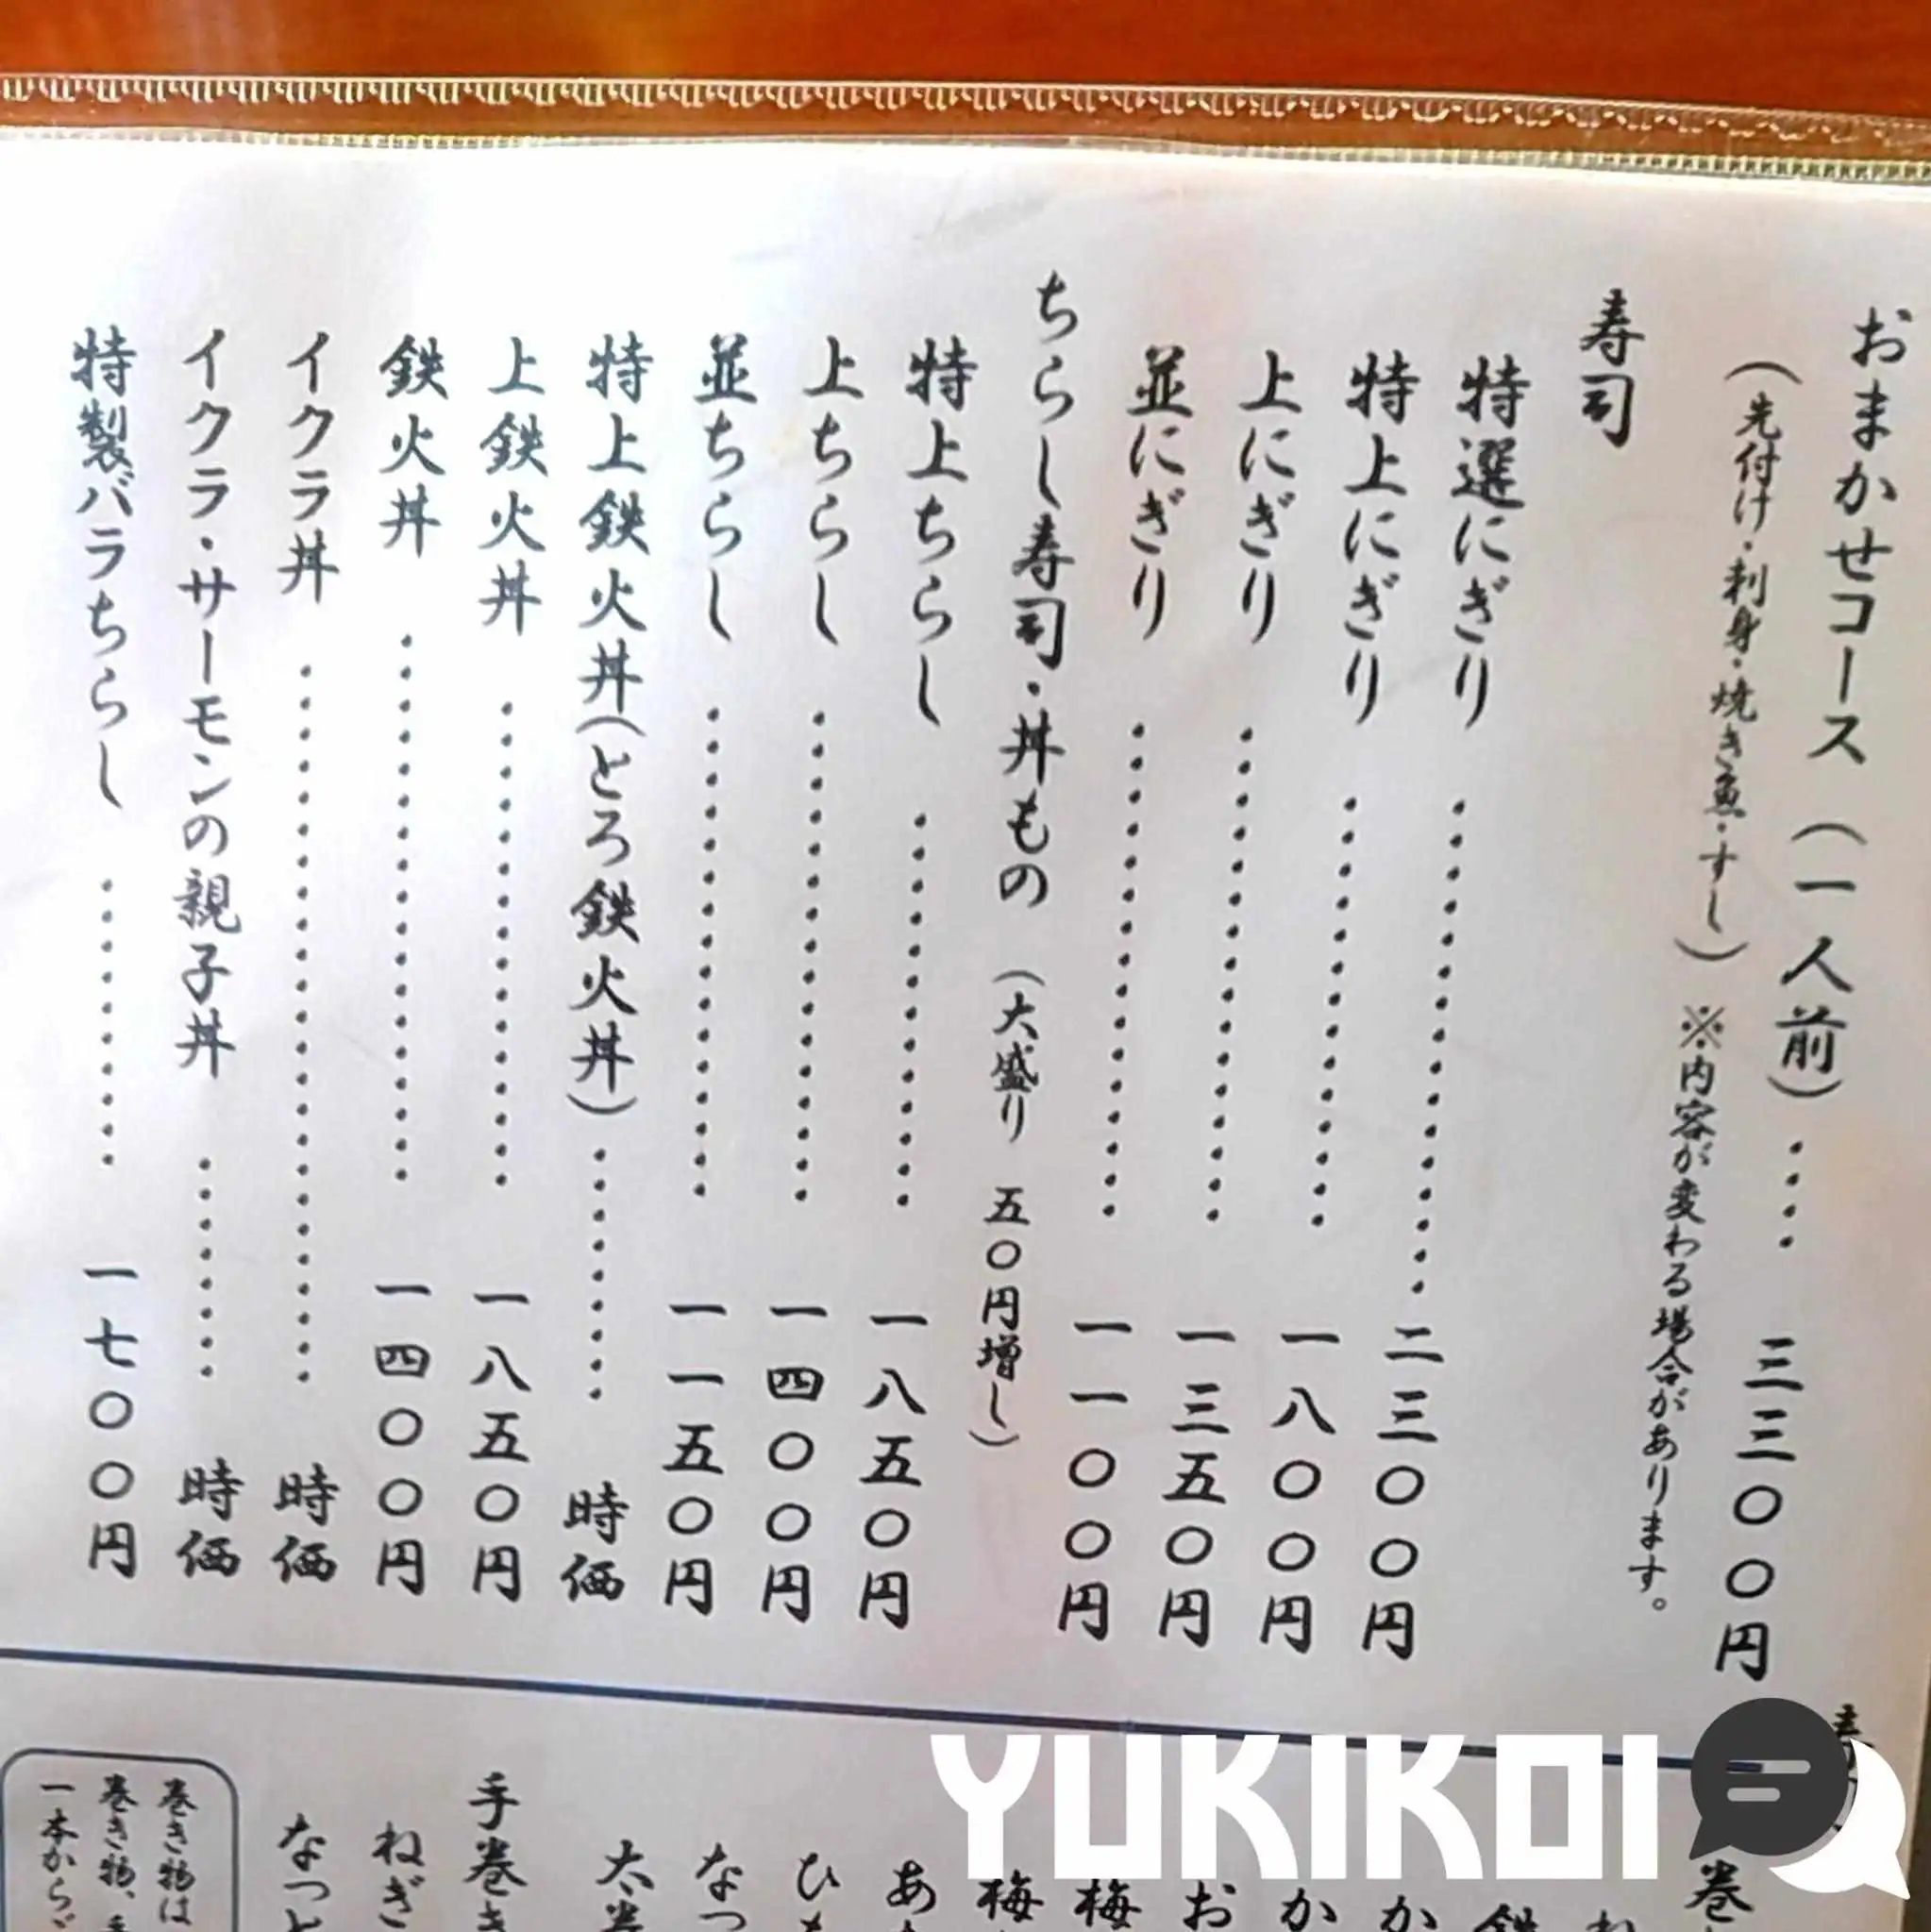 おまかせコース（一人前）‥‥三三〇〇円
（先付け・刺身・焼き魚・すし）※内容が変わる場合があります。
寿司
特選にぎり‥‥‥‥‥‥‥二三〇〇円
特上にぎり‥‥‥‥‥‥‥一八〇〇円
上にぎり‥‥‥‥‥‥‥一三五〇円
並にぎり‥‥‥‥‥‥‥一一〇〇円
ちらし寿司・丼もの（大盛り 五〇円増し）
特上ちらし‥‥‥‥‥‥一八五〇円
上ちらし‥‥‥‥‥‥‥一四〇〇円
並ちらし‥‥‥‥‥‥‥一一五〇円
特上鉄火丼（とろ鉄火丼）‥‥‥‥時価
上鉄火丼‥‥‥‥‥‥‥一八五〇円
鉄火丼‥‥‥‥‥‥‥‥一四〇〇円
イクラ丼‥‥‥‥‥‥‥‥‥‥時価
イクラ・サーモンの親子丼‥‥‥‥時価
特製バラちらし‥‥‥‥‥一七〇〇円
手巻き
ねぎ
なっと
巻き物は
巻き物、
一本から
YUKIKOI